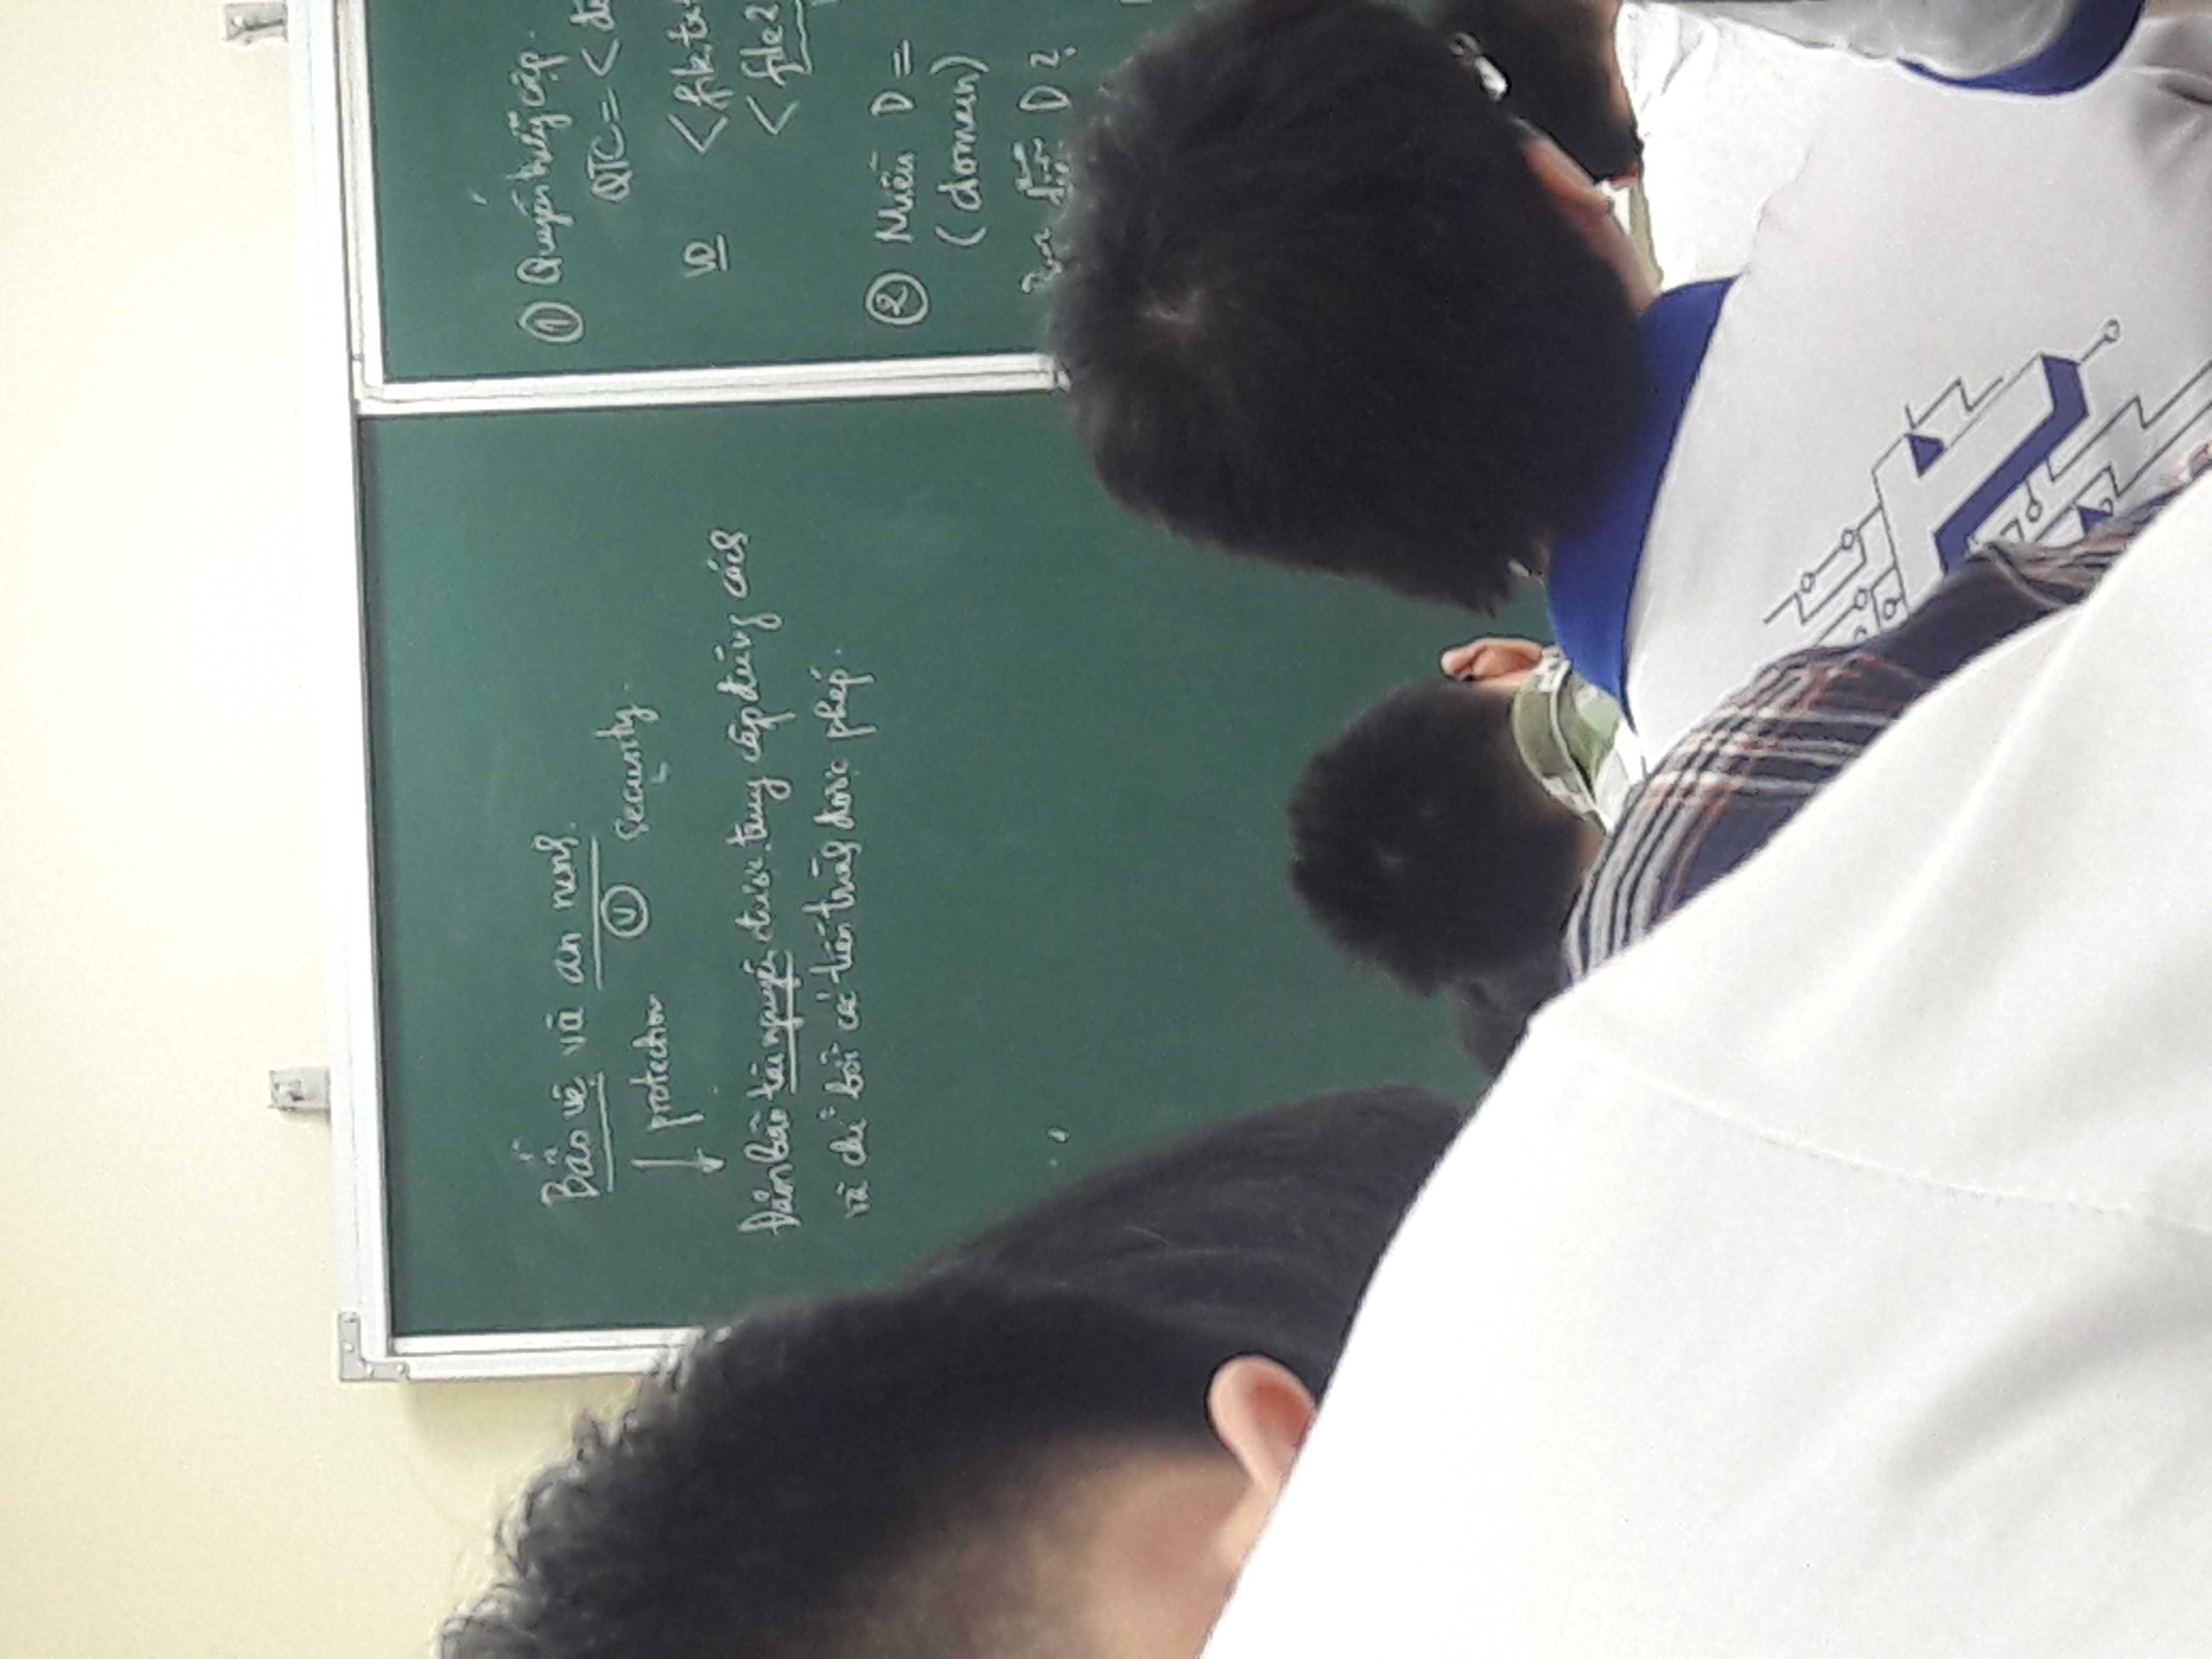 Bảo vệ và an ninh.
↓ protection Ⓤ security.
Đảm bảo tài nguyên được truy cập đúng cách
và chỉ bởi các tiến trình được phép.
① Quyền truy cập.
QTC = <
VD <file.tx
<file2
② Miền D =
(domain)
D ?